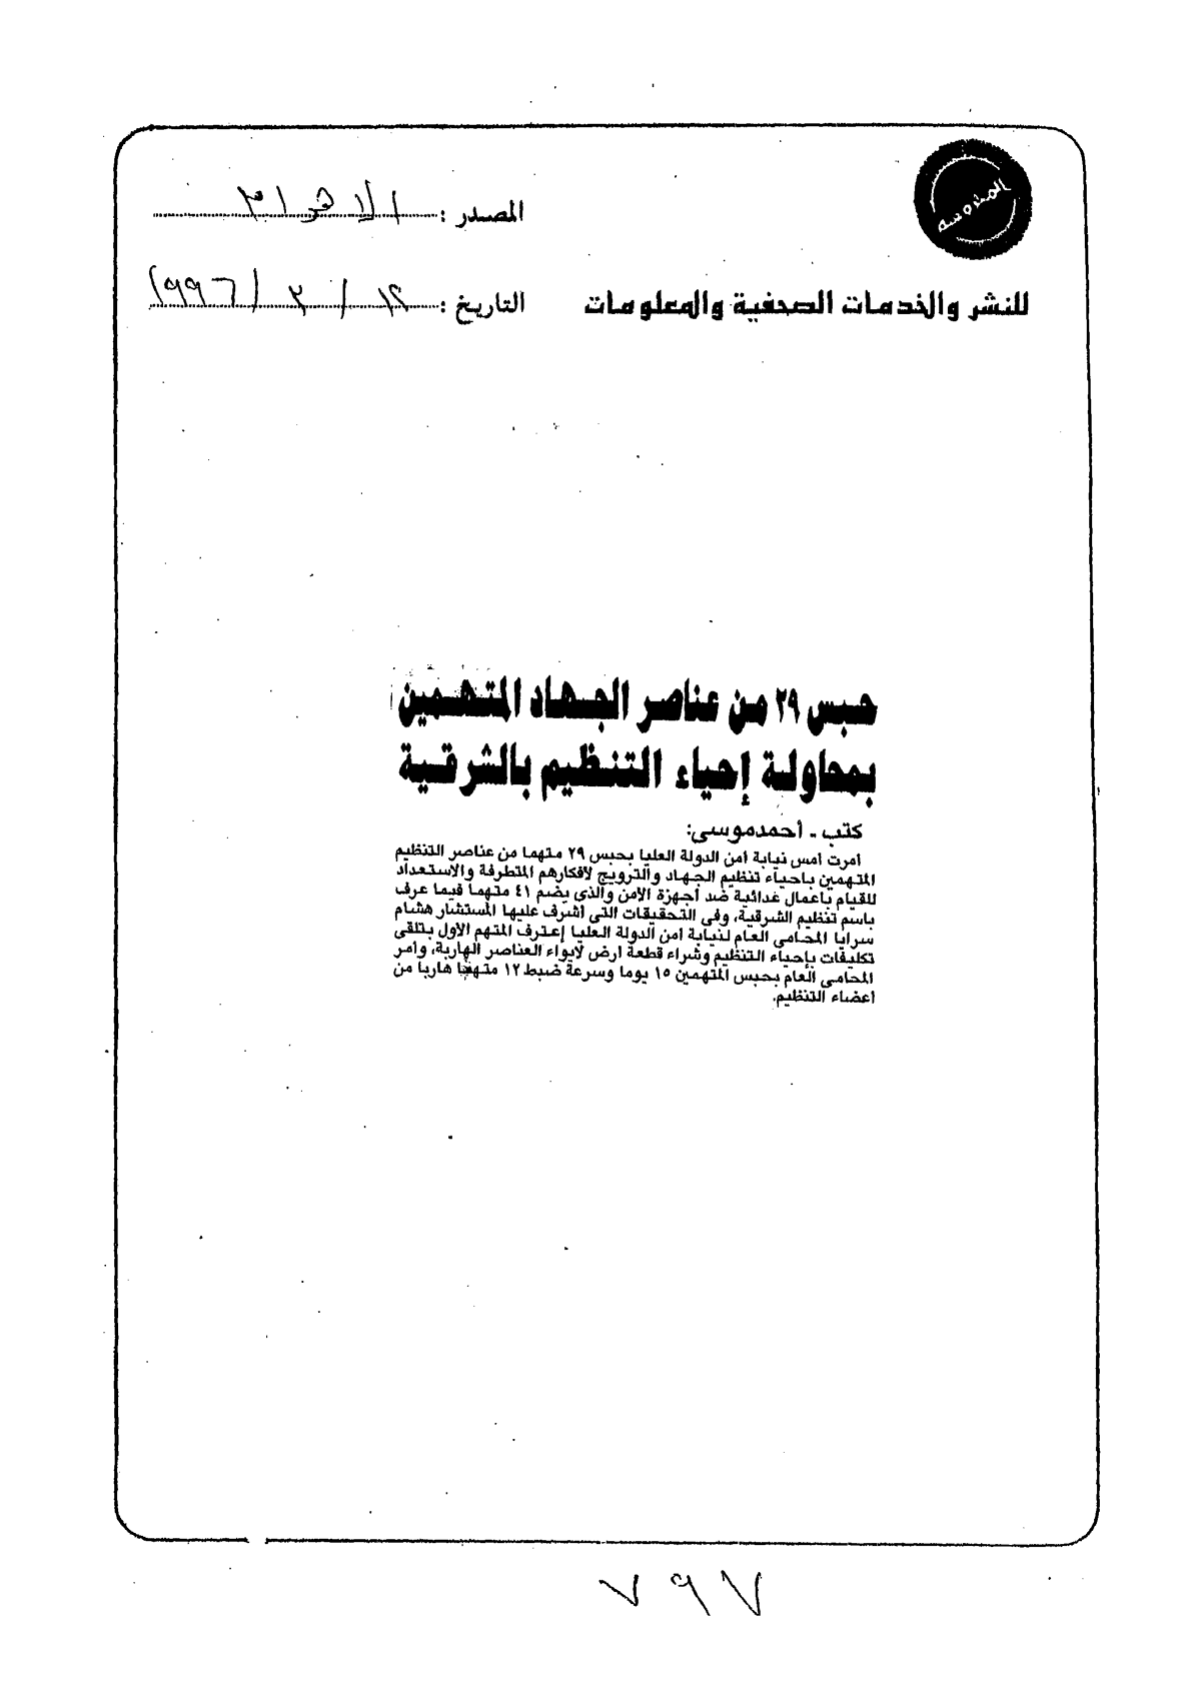 المدوسة
المصدر : الاهرام
للنشر والخدمات الصحفية والمعلومات
التاريخ : ١٢ / ٢ / ١٩٩٦
حبس ٢٩ من عناصر الجهاد المتهمين
بمحاولة إحياء التنظيم بالشرقية
كتب ـ أحمد موسى:
أمرت أمس نيابة أمن الدولة العليا بحبس ٢٩ متهما من عناصر التنظيم
المتهمين بإحياء تنظيم الجهاد والترويج لأفكارهم المتطرفة والاستعداد
للقيام بأعمال عدائية ضد أجهزة الأمن والذى يضم ٤١ متهما فيما عرف
باسم تنظيم الشرقية، وفى التحقيقات التى أشرف عليها المستشار هشام
سرايا المحامى العام لنيابة أمن الدولة العليا إعترف المتهم الأول بتلقى
تكليفات بإحياء التنظيم وشراء قطعة أرض لايواء العناصر الهاربة، وأمر
المحامى العام بحبس المتهمين ١٥ يوما وسرعة ضبط ١٢ متهما هاربا من
أعضاء التنظيم.
٧٩٧